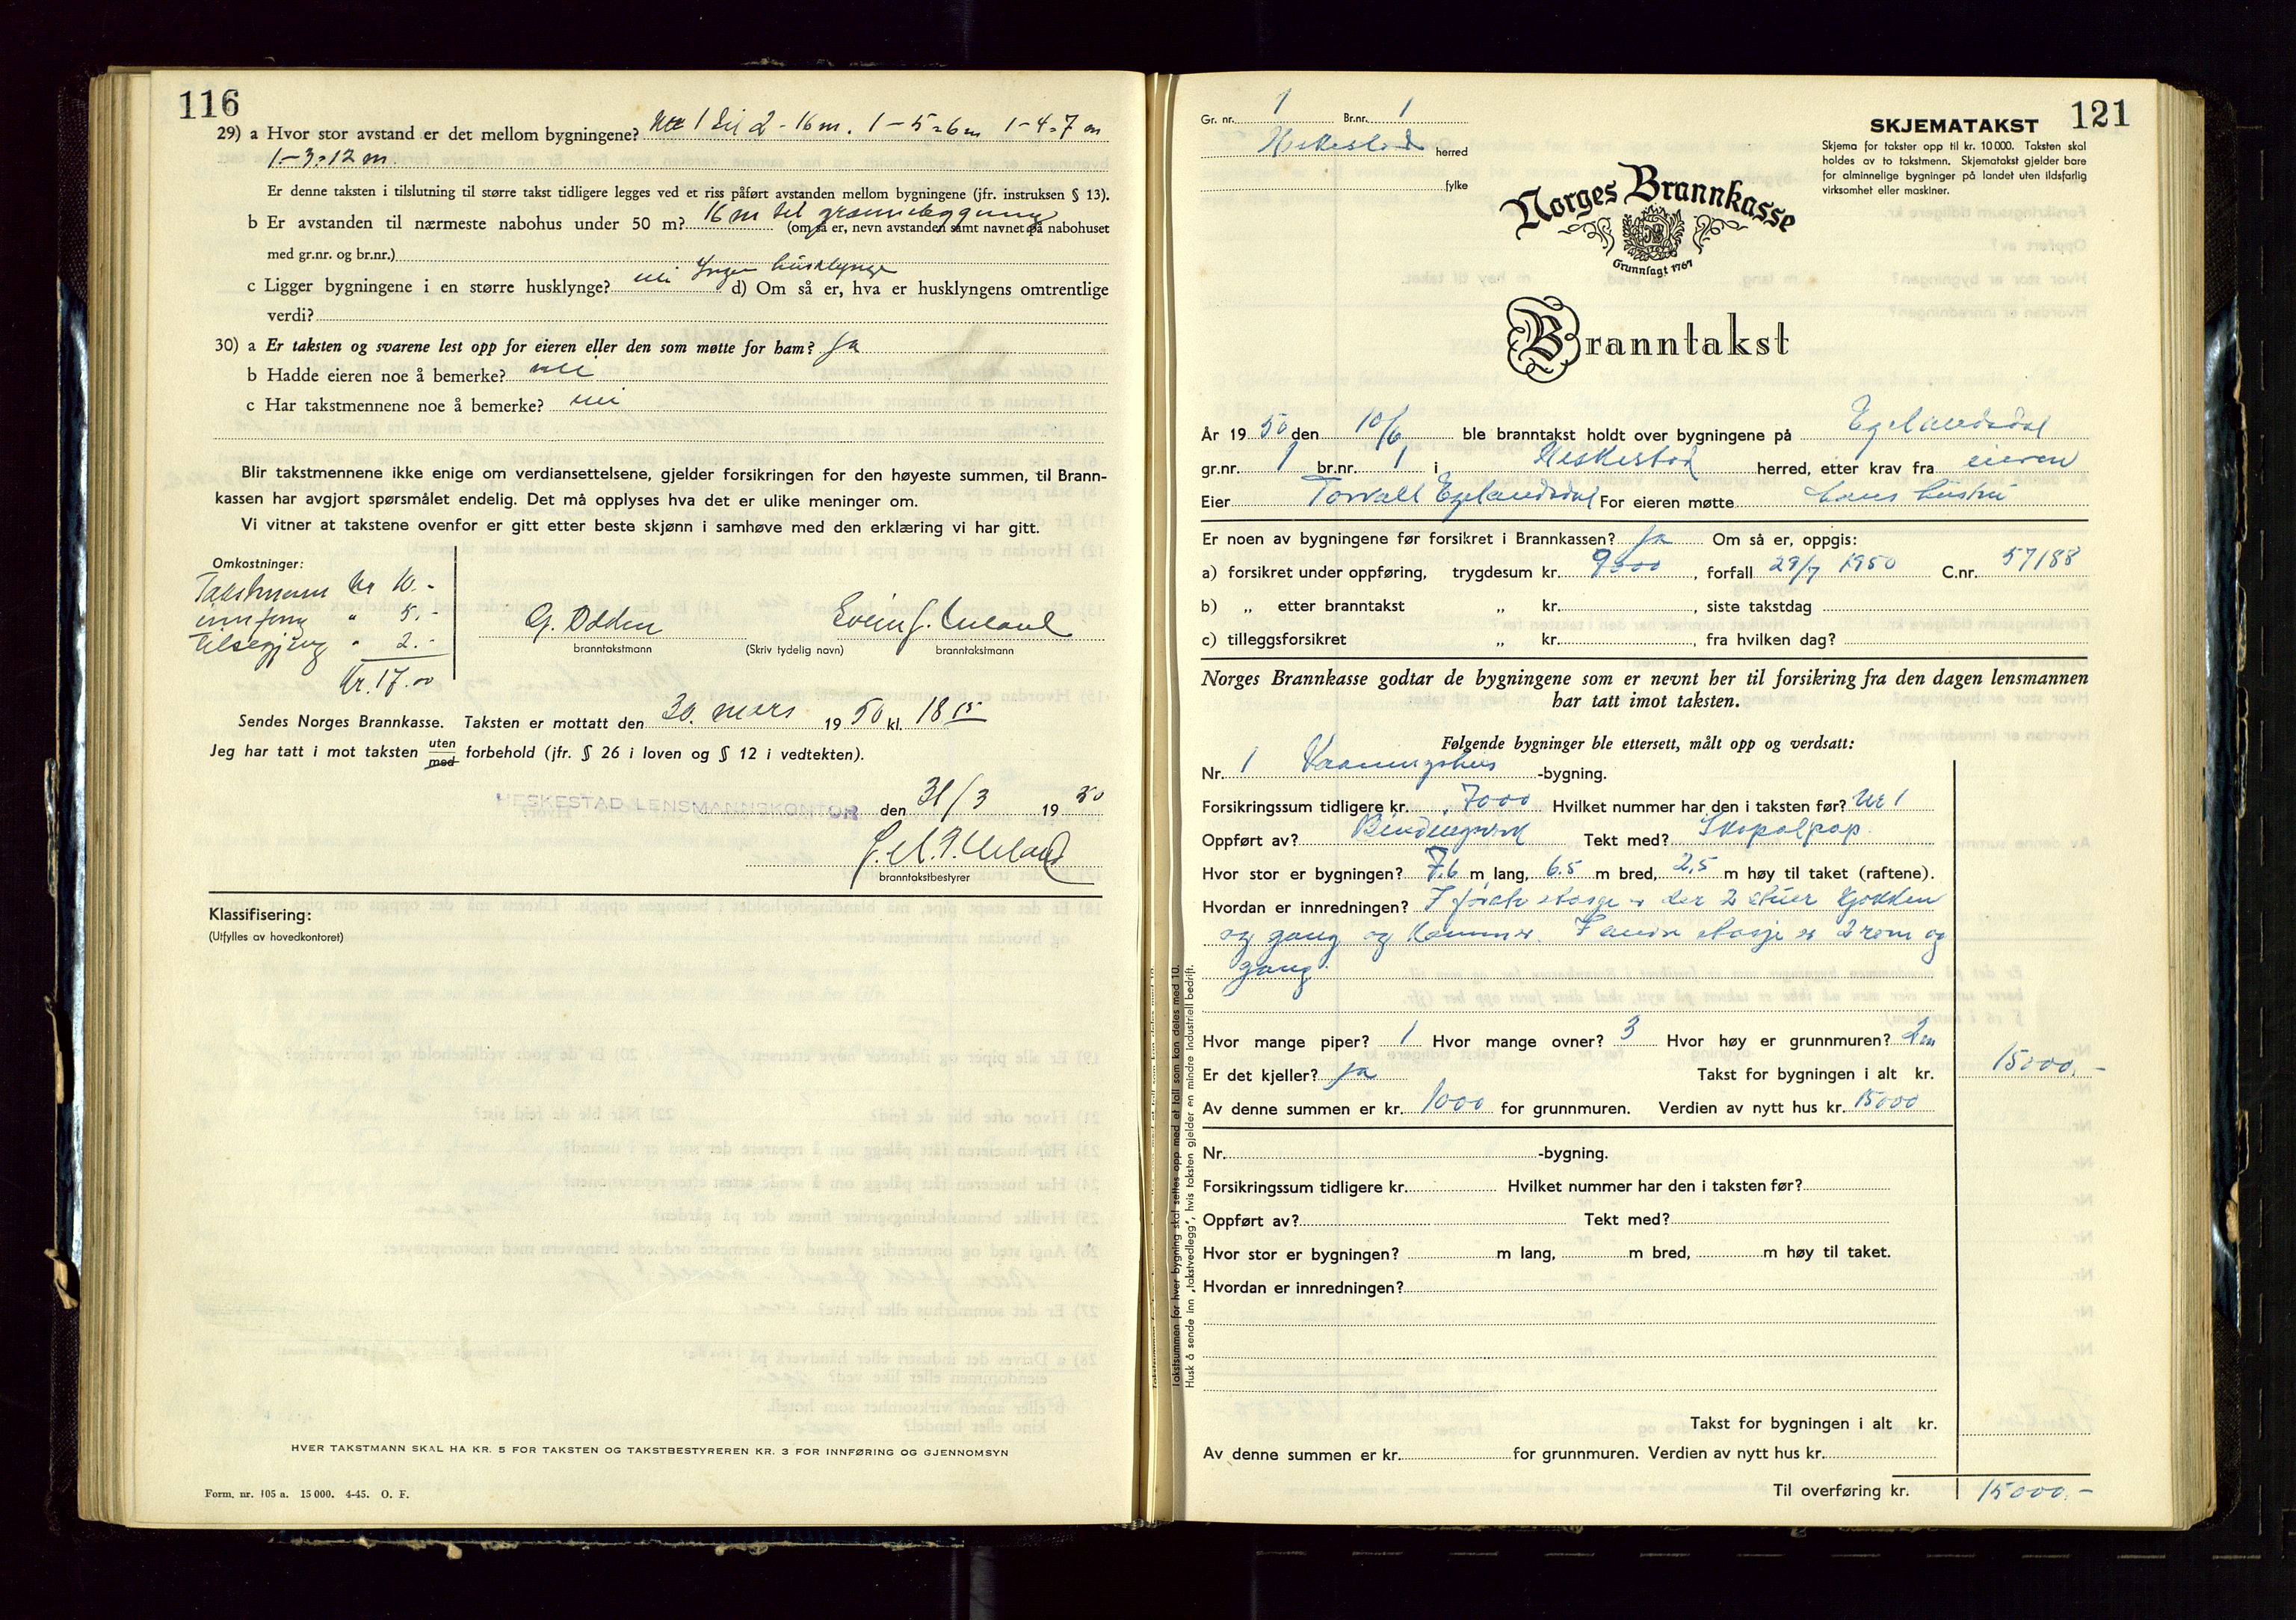 116
29) a Hvor stor avstand er det mellom bygningene? Nr 1 til 2 - 16 m. 1 - 5 = 6 m 1 - 4 = 7 m
1 - 3 = 12 m.
Er denne taksten i tilslutning til større takst tidligere legges ved et riss påført avstanden mellom bygningene (jfr. instruksen § 13).
b Er avstanden til nærmeste nabohus under 50 m? 16 m til grannebygning (om så er, nevn avstanden samt navnet på nabohuset
med gr.nr. og br.nr.)
c Ligger bygningene i en større husklynge? nei Ingen husklynge d) Om så er, hva er husklyngens omtrentlige
verdi?
30) a Er taksten og svarene lest opp for eieren eller den som møtte for ham? ja
b Hadde eieren noe å bemerke? nei
c Har takstmennene noe å bemerke? nei
Blir takstmennene ikke enige om verdiansettelsene, gjelder forsikringen for den høyeste summen, til Brann-
kassen har avgjort spørsmålet endelig. Det må opplyses hva det er ulike meninger om.
Vi vitner at takstene ovenfor er gitt etter beste skjønn i samhøve med den erklæring vi har gitt.
Omkostninger:
Takstmenn kr 10.-
innføring " 5.-
" 2.-
Kr. 17.00
G. Odden
branntakstmann
(Skriv tydelig navn)
Svein J. Ueland
branntakstmann
Sendes Norges Brannkasse. Taksten er mottatt den 30. mars 1950 kl. 18 15
Jeg har tatt i mot taksten uten med forbehold (jfr. § 26 i loven og § 12 i vedtekten).
HESKESTAD LENSMANNSKONTOR den 31/3 1950
Ueland
branntakstbestyrer
Klassifisering:
(Utfylles av hovedkontoret)
HVER TAKSTMANN SKAL HA KR. 5 FOR TAKSTEN OG TAKSTBESTYREREN KR. 3 FOR INNFØRING OG GJENNOMSYN
Form. nr. 105 a. 15 000. 4-45. O. F.
Takstsummen for hver bygning skal settes opp med et tall som kan deles med 10.
Husk å sende inn „takstvedlegg“, hvis taksten gjelder en mindre industriell bedrift.
121
Gr. nr. 1 Br.nr. 1
Heskestad herred
fylke
SKJEMATAKST
Skjema for takster opp til kr. 10 000. Taksten skal
holdes av to takstmenn. Skjematakst gjelder bare
for alminnelige bygninger på landet uten ildsfarlig
virksomhet eller maskiner.
Norges Brannkasse
NB
Grunnlagt 1767
Branntakst
År 1950 den 10/6 ble branntakst holdt over bygningene på Egelandsdal
gr.nr. 1 br.nr. 1 i Heskestad herred, etter krav fra eieren
Eier Torvall Egelandsdal For eieren møtte hans hustru
Er noen av bygningene før forsikret i Brannkassen? ja Om så er, oppgis:
a) forsikret under oppføring, trygdesum kr. 9000, forfall 29/7 1950 C.nr. 57188
b) „ etter branntakst „ kr. , siste takstdag
c) tilleggsforsikret „ kr. , fra hvilken dag?
Norges Brannkasse godtar de bygningene som er nevnt her til forsikring fra den dagen lensmannen
har tatt imot taksten.
Følgende bygninger ble ettersett, målt opp og verdsatt:
Nr. 1 Vaaningshus -bygning.
Forsikringssum tidligere kr. 7000 Hvilket nummer har den i taksten før? Nr 1
Oppført av? Bindingsverk Tekt med? Skopalpap.
Hvor stor er bygningen? 7.6 m lang, 6.5 m bred, 2.5 m høy til taket (raftene).
Hvordan er innredningen? I første etasje er der 2 stuer Kjøkken
og gang og Kammer. I anden etasje er 2 rom og
gang.
Hvor mange piper? 1 Hvor mange ovner? 3 Hvor høy er grunnmuren? 2 m
Er det kjeller? ja Takst for bygningen i alt kr. 15000.-
Av denne summen er kr. 1000 for grunnmuren. Verdien av nytt hus kr. 15000
Nr. -bygning.
Forsikringssum tidligere kr. Hvilket nummer har den i taksten før?
Oppført av? Tekt med?
Hvor stor er bygningen? m lang, m bred, m høy til taket.
Hvordan er innredningen?
Takst for bygningen i alt kr.
Av denne summen er kr. for grunnmuren. Verdien av nytt hus kr.
Til overføring kr. 15000.-